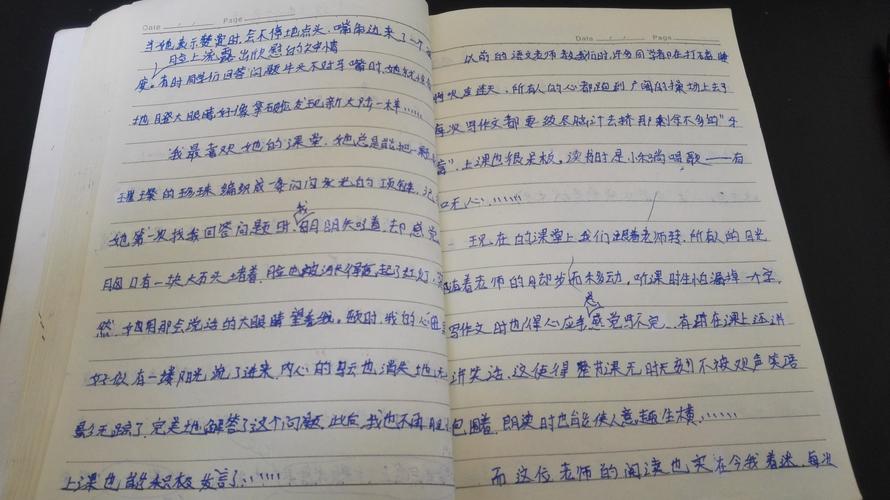 Date / / Page
当她表示赞赏时,会不停地点头,嘴角边来了一个
脸上流露出欣慰的神情
度。有时同学们回答问题牛头不对马嘴时,她就
地瞪大眼睛好像拿破仑发现新大陆一样……
我最喜欢她的课堂,她总是能把一颗
璀璨的珍珠编织成一条闪闪发光的项链。记
她第一次找我回答问题时,我明明知道,却感觉
胸口有一块大石头堵着,脸也被涨得起了红灯,
然,她用那会说话的大眼睛望着我。顿时,我的心里
好似有一缕阳光流了进来,内心的乌云也消失地无
影无踪了,完美地解答了这个问题,此后,我也不再
上课也能积极发言了……
Date / / Page
以前的语文老师教我们时,许多同学都在打不着
吹连天,所有人的心都跑到广阔的操场上去了
每次写作文都要绞尽脑汁去挤那剩余不多的"牙
膏",上课也很呆板,读书时是小和尚唱歌——有
口无心……
现在的课堂上我们跟着老师转,所有人的目光
随着老师的脚步而移动,听课时生怕漏掉一字,
写作文时也得心应手,总感觉写不完,有时在课上还讲
讲笑话,这使得整节课无时无刻不被欢声笑语
包围着,朗读时也能使人意趣生横……
而这位老师的阅读也实在令我着迷,每次